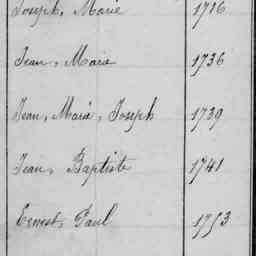 Joseph, Marie 1716
Jean, Marie 1736
Jean, Marie, Joseph 1739
Jean, Baptiste 1741
Ernest, Paul 1753